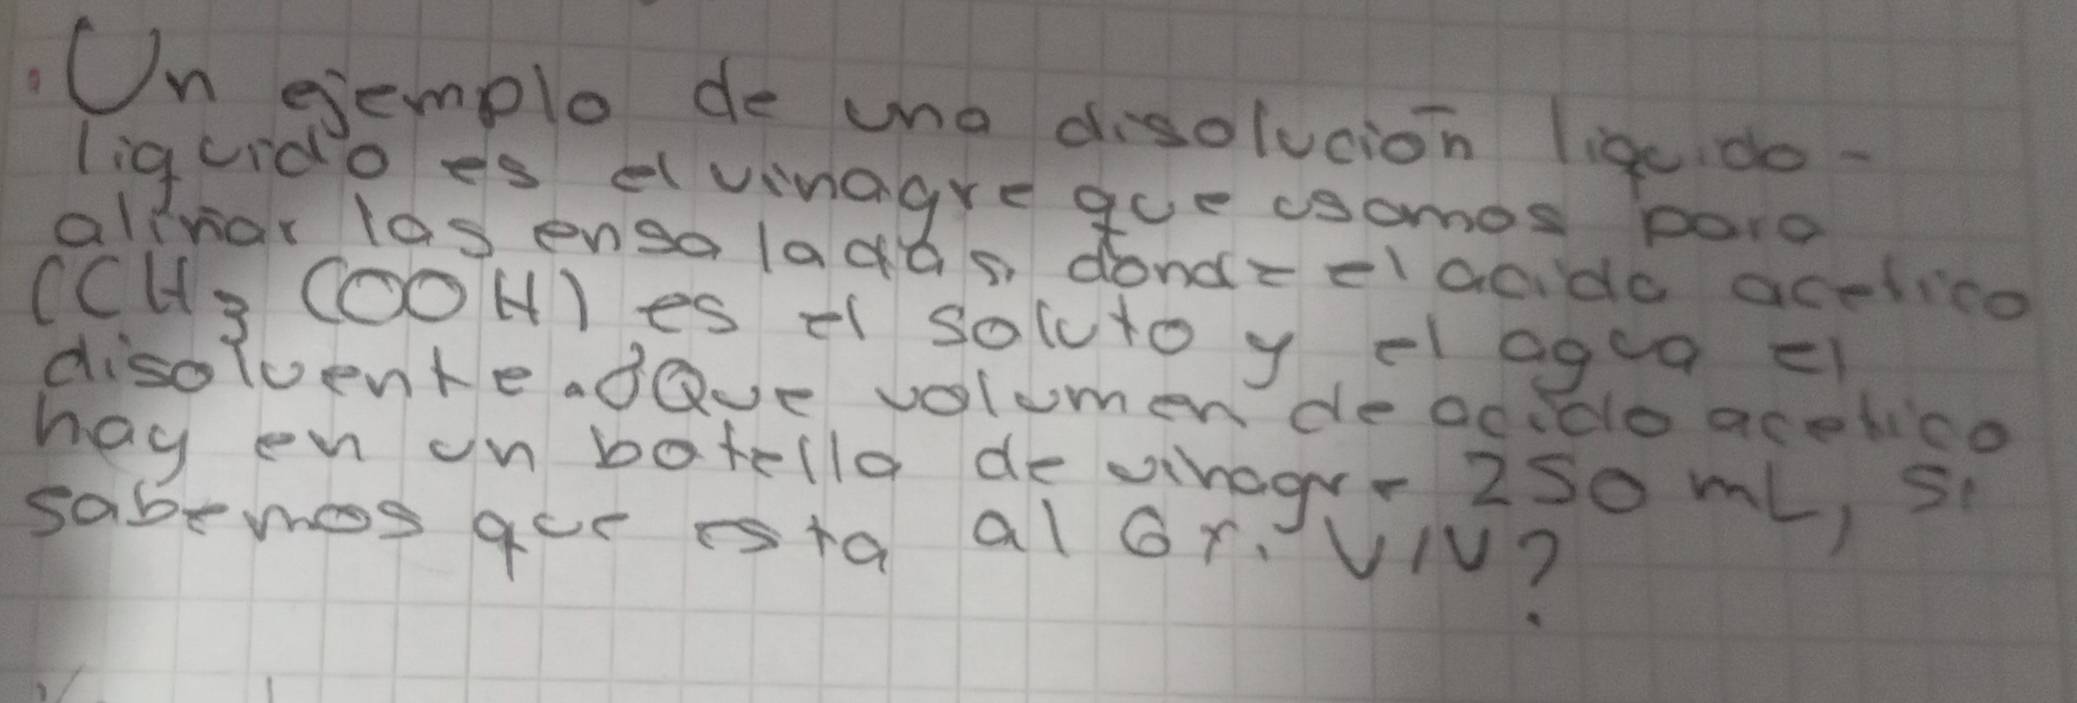 Un ejemplo de una disolución liquido -
liquido es el vinagre que usamos para
aliñar las ensaladas, donde el acido acetico
(CH3 COOH) es el soluto y el agua el
disolvente. ¿Que volumen de acido acetico
hay en un botella de vinagre 250 mL, si
sabemos que esta al 6%. V/V?